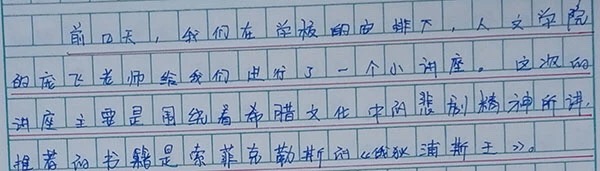 前四天，我们在学校的安排下，人文学院
的庞飞老师给我们进行了一个小讲座。这次的
讲座主要是围绕着希腊文化中的悲剧精神所讲，
推荐的书籍是索菲克勒斯的《俄狄浦斯王》。